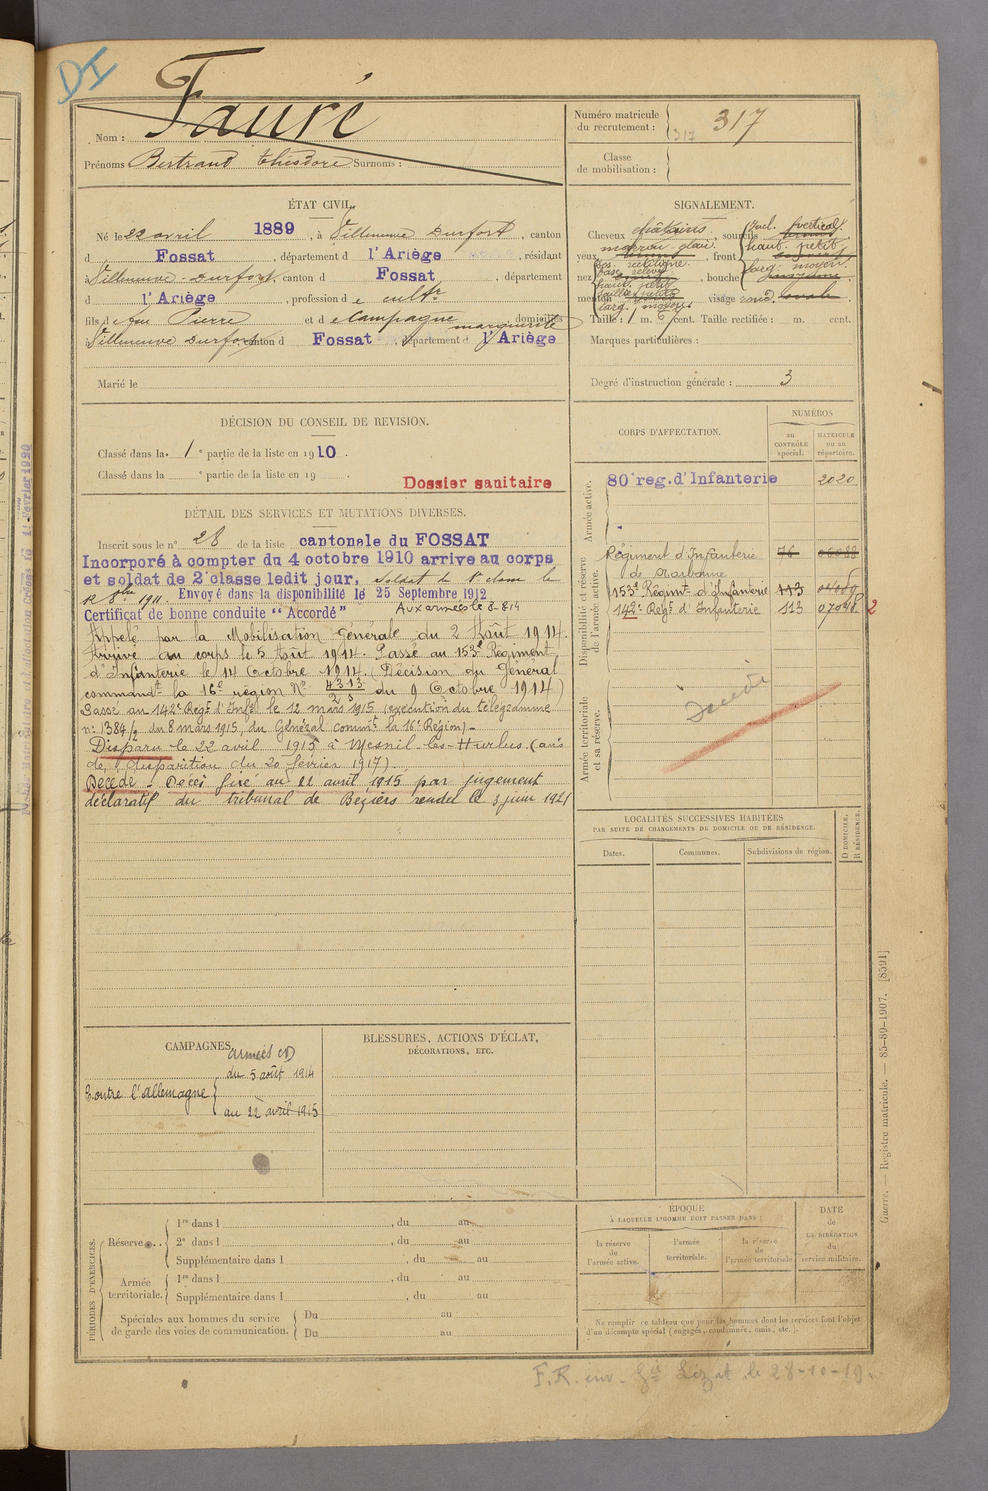 DI
Nom : Fauré
Prénoms Bertrand Théodore Surnoms :
Numéro matricule du recrutement : 317
317
Classe de mobilisation :
ÉTAT CIVIL.
Né le 22 avril 1889, à Villeneuve Durfort, canton
d Fossat, département d l'Ariège, résidant
à Villeneuve-Durfort, canton d Fossat, département
d l'Ariège, profession de cultr
fils de feu Pierre et de Campagne marguerite domiciliés
à Villeneuve Durfort canton d Fossat, département d l'Ariège
Marié le
SIGNALEMENT.
Cheveux châtains, sourcils
yeux marron clair, front incl. vertical haut. petit larg. moyen
nez dos. rectiligne base relevé haut. petit saillie petite larg. moyen, bouche
menton visage rond
Taille : 1 m. cent. Taille rectifiée : m. cent.
Marques particulières :
Degré d'instruction générale : 3
DÉCISION DU CONSEIL DE REVISION.
Classé dans la 1e partie de la liste en 1910.
Classé dans la e partie de la liste en 19 .
Dossier sanitaire
DÉTAIL DES SERVICES ET MUTATIONS DIVERSES.
Inscrit sous le n° 28 de la liste cantonale du FOSSAT
Incorporé à compter du 4 octobre 1910 arrive au corps
et soldat de 2e classe ledit jour, soldat de 1e classe le
8 8bre 1911. Envoyé dans la disponibilité le 25 Septembre 1912
Certificat de bonne conduite "Accordé" Aux armées le 8-8-14
Appelé par la Mobilisation générale du 2 Août 1914.
Arrivé au corps le 5 Août 1914. Passé au 153e Régiment
d'Infanterie le 14 Octobre 1914. (Décision du Général
commandt la 16e région N° 4313/23 du 9 Octobre 1914)
Passé au 142e Regt d'Infie le 12 mars 1915 (exécution du télégramme
n° 1384/2 du 8 mars 1915, du Général commt la 16e Région)-
Disparu le 22 avril 1915 à Mesnil-les-Hurlus. (avis
de disparition du 20 février 1917)
Décédé : Décès fixé au 22 avril 1915 par jugement
déclaratif du tribunal de Béziers rendu le 3 juin 1921
CORPS D'AFFECTATION.
NUMÉROS
au CONTRÔLE spécial.
MATRICULE ou au répertoire.
Armée active.
80e reg. d'Infanterie 2020
Disponibilité et réserve de l'armée active.
Régiment d'Infanterie de Narbonne 76
153e Régimt d'Infanterie 113
142e Regt d'Infanterie 113
2
Armée territoriale et sa réserve.
Décédé
LOCALITÉS SUCCESSIVES HABITÉES
PAR SUITE DE CHANGEMENTS DE DOMICILE OU DE RÉSIDENCE.
Dates.
Communes.
Subdivisions de région.
D DOMICILE. R RÉSIDENCE.
CAMPAGNES.
Contre l'Allemagne armées (D) du 5 août 1914
au 22 avril 1915
BLESSURES, ACTIONS D'ÉCLAT,
DÉCORATIONS, ETC.
PÉRIODES D'EXERCICES.
Réserve...
1re dans l , du au
2e dans l , du au
Supplémentaire dans l , du au
Armée territoriale.
1re dans l , du au
Supplémentaire dans l , du au
Spéciales aux hommes du service de garde des voies de communication.
Du au
Du au
ÉPOQUE
À LAQUELLE L'HOMME DOIT PASSER DANS :
la réserve de l'armée active.
l'armée territoriale.
la réserve de l'armée territoriale
DATE de LA LIBÉRATION du service militaire.
Ne remplir ce tableau que pour les hommes dont les services font l'objet
d'un décompte spécial (engagés, condamnés, omis, etc.).
Guerre. — Registre matricule. — 85-89-1907. [8591]
F.R. env. Gie Lézat le 28-10-19